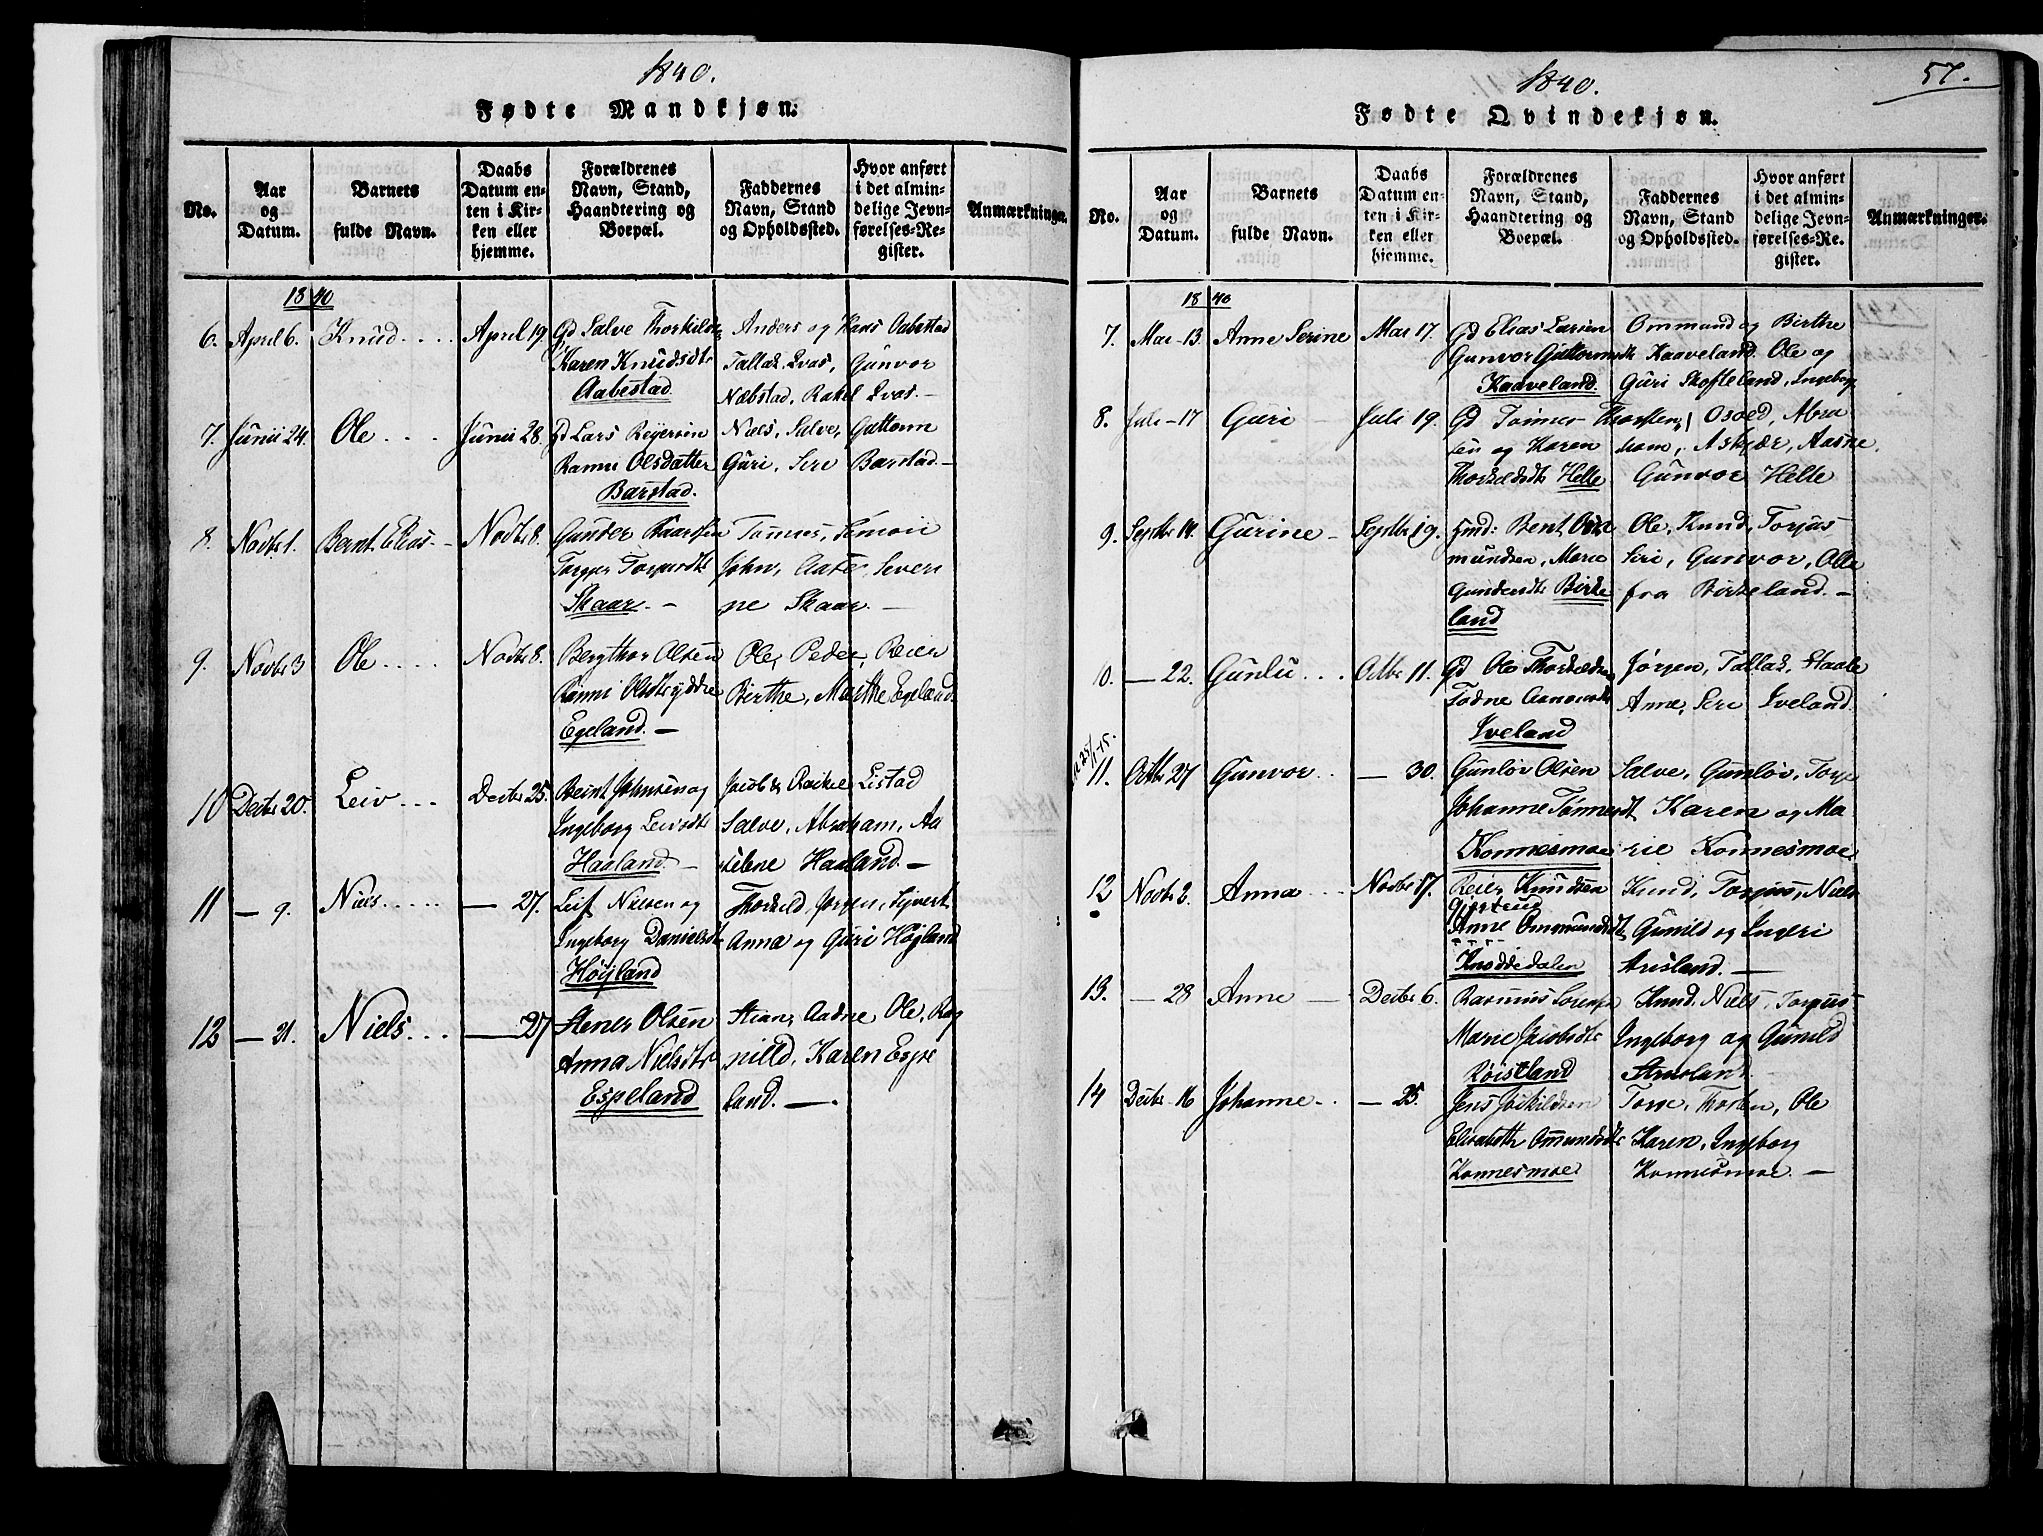 1840.
Fødte Mandkjøn.
No.
Aar
og
Datum.
Barnets
fulde Navn.
Daabs
Datum en-
ten i Kir-
ken eller
hjemme.
Forældrenes
Navn, Stand,
Haandtering og
Boepæl.
Faddernes
Navn, Stand
og Opholdssted.
Hvor anført
i det almin-
delige Jevn-
førelses-Re-
gister.
Anmærkninger.
1840
6. April 6. Knud .... April 19. Gd Salve Thorkilds
Karen Knudsdtr
Aabestad
Anders og Hans Aabestad
Tallak Qvas, Gunvor
Næbstad, Rakel Qvas. -
7. Junii 24. Ole .... Junii 28. Gd Lars Reÿersen
Ranni Olsdatter
Barstad.
Niels, Salve, Guttorm
Guri, Seri Barstad. -
8. Novbr 1. Bernt Elias - Novbr 8. Gunder
Skaar. -
Tønnes, Simon
John, Aase, Severi
ne Skaar. -
9. Novbr 3 Ole .... Novbr 8. Bergthor Olsen
Ranni Olsdtr yddre
Egeland. -
Ole, Peder, Reier
Birthe, Marthe Egeland
10 Decbr 20. Leiv ... Decbr 25. Beint Johnsen og
Ingeborg Leivsdtr
Haaland. -
Jacob & Rakel Listad
Salve, Abraham, Aa
selene Haaland. -
11 - 9. Niels ..... - 27. Leif Nielsen og
Ingeborg Danielsdtr
Höyland
Thorkild, Jørgen, Syvert
Anna og Guri Høyland
12 - 21. Niels ... - 27 Stener Olsen
Anna Nielsdtr
Espeland
Stian, Aadne, Ole, Rag
nilld, Karen Espe
land. -
1840.
57.
Fødte Qvindekjøn.
No.
Aar
og
Datum.
Barnets
fulde Navn.
Daabs
Datum en-
ten i Kir-
ken eller
hjemme.
Forældrenes
Navn, Stand,
Haandtering og
Boepæl.
Faddernes
Navn, Stand
og Opholdssted.
Hvor anført
i det almin-
delige Jevn-
førelses-Re-
gister.
Anmærkninger.
1840
7. Mai - 13. Anne Serine Mai 17. Gd Elias Larsen
Gunvor Guttormsdtr
Kaaveland.
Ommund og Birthe
Kaaveland. Ole og
Guri Skofteland, Ingeborg
8. Juli - 17 Guri - Juli 19. Gd Tønnes Thorsten
sen og Karen
Thorkeldsdtr Helle
Osold, Abra
ham, Askjær, Aasne
Gunvor Helle
9. Septbr 14. Gurine - Septbr 19. Bent Os
mundsen, Marie
Gundersdtr Birke
land
Ole, Knud, Torjus
Seri, Gunvor, Olle
fra Birkeland. -
10. - 22. Gunlu ... Octbr 11. Gd Ole
Todne Aanensdtr
Iveland
Jørgen, Tallak, Staale
Anne, Seri Iveland
11. Octbr 27 Gunvor .. - 30. Gunløv Olsen
Johanne Tønnesdt
Konnesmoe
Salve, Gunløv, Torje
Karen og Ma
rie Konnesmoe
12 Novbr 2. Anna ... Novbr 17. Reier Knudsen
Anne Ommundsdt
Knoddedalen
Knud, Torjus, Niels
Gunild og Ingeri
Arisland. -
13. - 28 Anne - Decbr 6. Rasmus Sorens
Marie Jacobsdtr
Röistland
Knud, Niels, Torjus
Ingeborg og Gunild
14 Decbr 16 Johanne .. - 25. Jens Joskildsen
Elisabeth Ommundsdtr
Konnesmoe
Torje, Thosten, Ole
Karen, Ingeborg
Konnesmoe. -